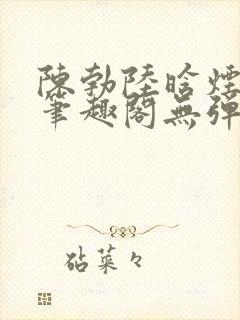 陳勃陸晗煙
筆趣閣無彈
砧菜々